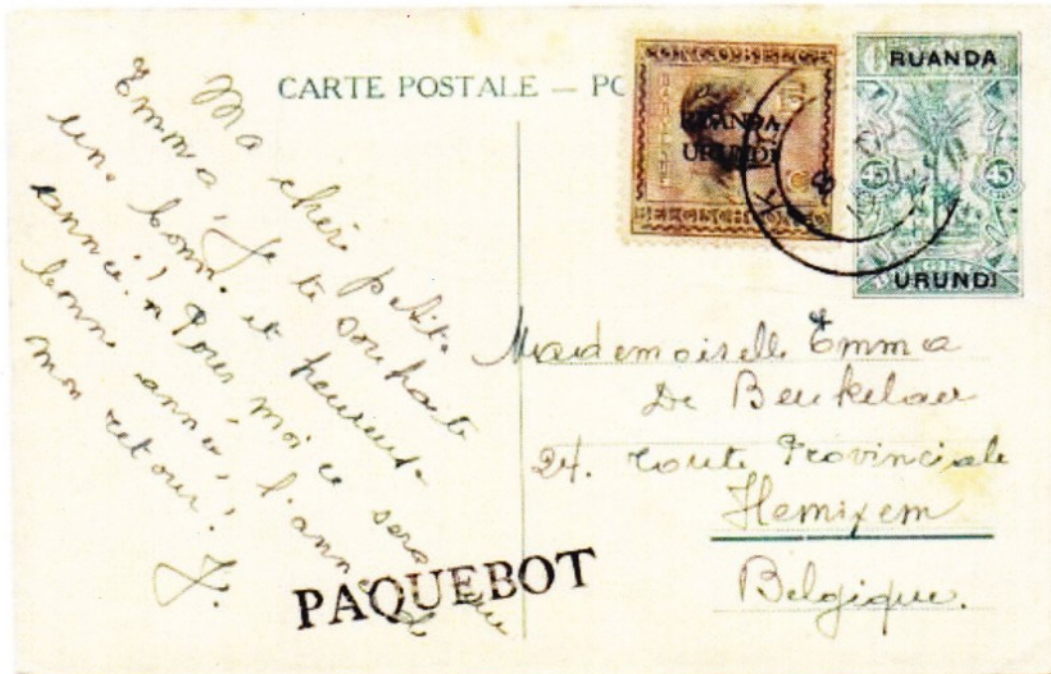 CARTE POSTALE — PO
CONGO BELGE
RUANDA
URUNDI
BELGISCH CONGO
RUANDA
45 45
URUNDI
Ma chère petite
Emma, Je te souhaite
une bonne et heureuse
année! Pour moi ce sera une
bonne année, l'année de
mon retour!
J.
PAQUEBOT
Mademoiselle Emma
De Beukelaer
24. route Provinciale
Hemixem
Belgique.